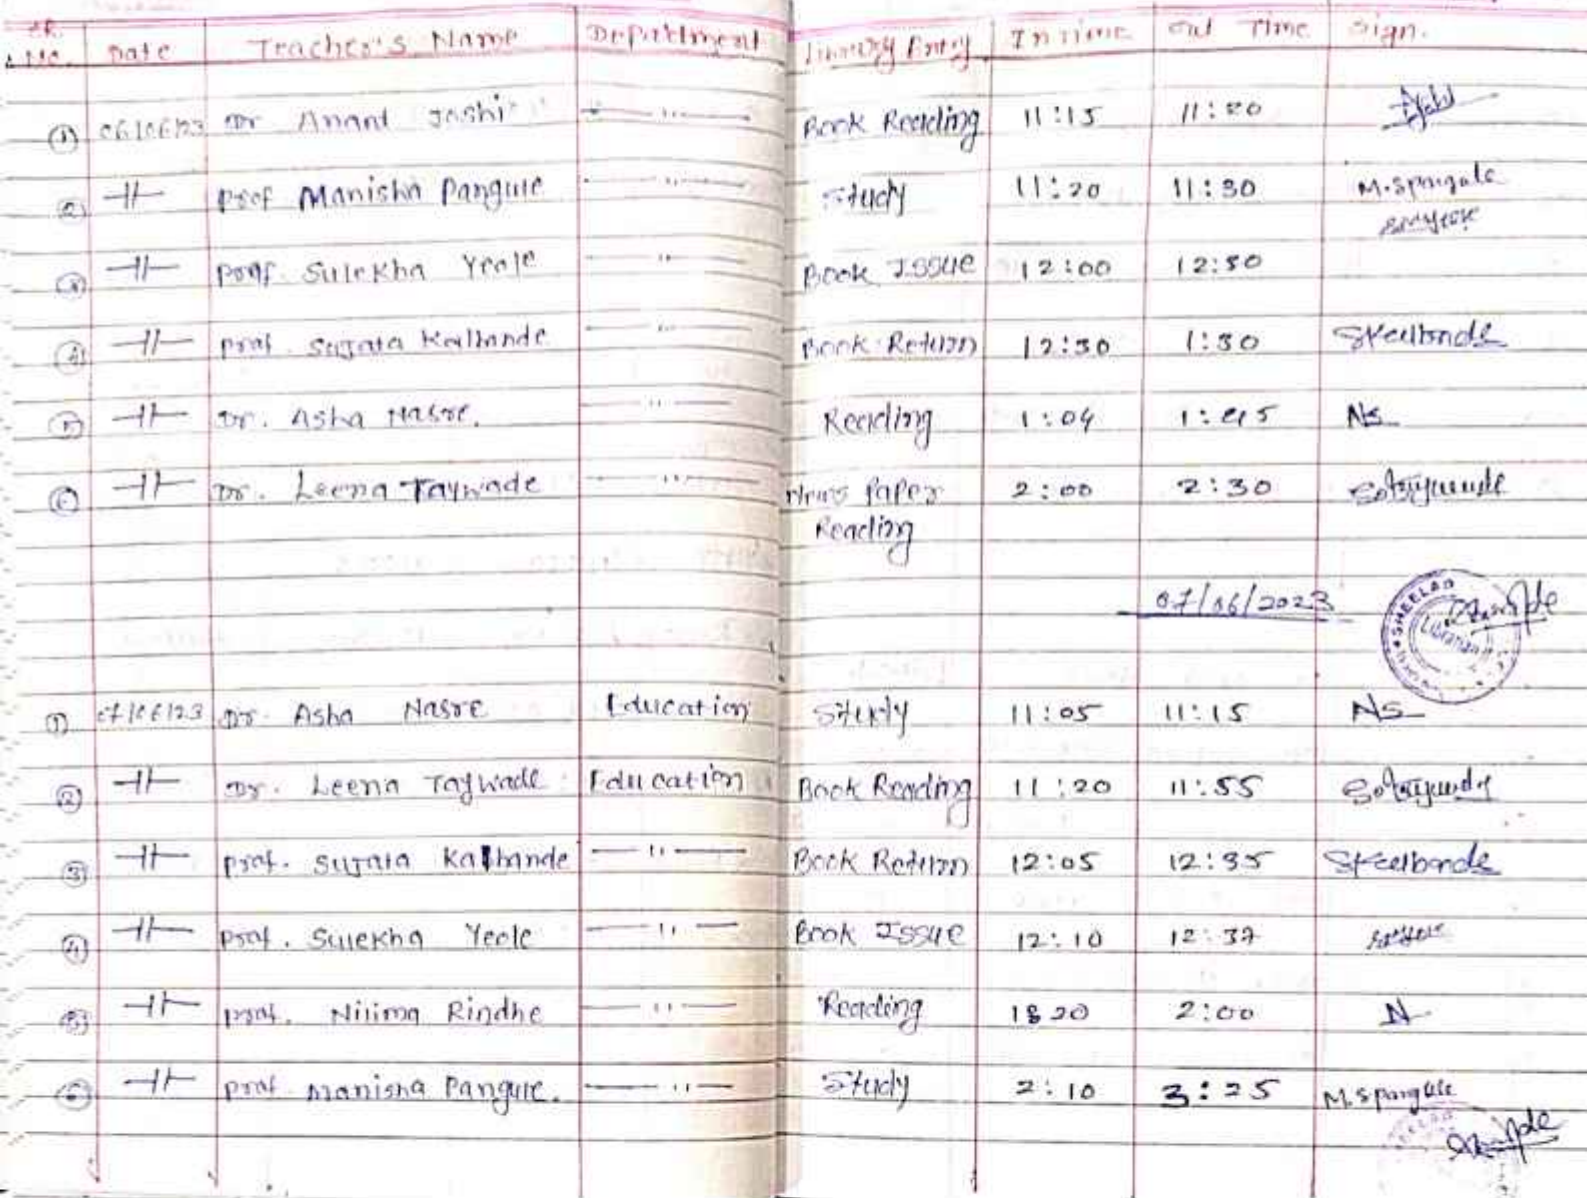 SR. NO. Date Teacher's Name Department Library Entry In Time Out Time Sign.
① 06/06/23 Dr Anant Joshi — " — Book Reading 11:15 11:20
② -11- Prof Manisha Pangule — " — Study 11:20 11:30 M.Spangule
③ -11- Prof. Sulekha Yeole — " — Book Issue 12:00 12:50
④ -11- Prof. Sujata Kalbande — " — Book Return 12:30 1:30 Skalbande
⑤ -11- Dr. Asha Nasre. — " — Reading 1:04 1:45 Ns
⑥ -11- Dr. Leena Taywade — " — News Paper 2:00 2:30
Reading
07/06/2023
SHEELAD
Librarian
① 07/06/23 Dr. Asha Nasre Education Study 11:05 11:15 Ns
② -11- Dr. Leena Taywade Education Book Reading 11:20 11:55
③ -11- Prof. Sujata Kalbande — " — Book Return 12:05 12:35 Skalbande
④ -11- Prof. Sulekha Yeole — " — Book Issue 12:10 12:37
⑤ -11- Prof. Nilima Rindhe — " — Reading 2:00 N
⑥ -11- Prof. Manisha Pangule. — " — Study 2:10 3:25 M.Spangule